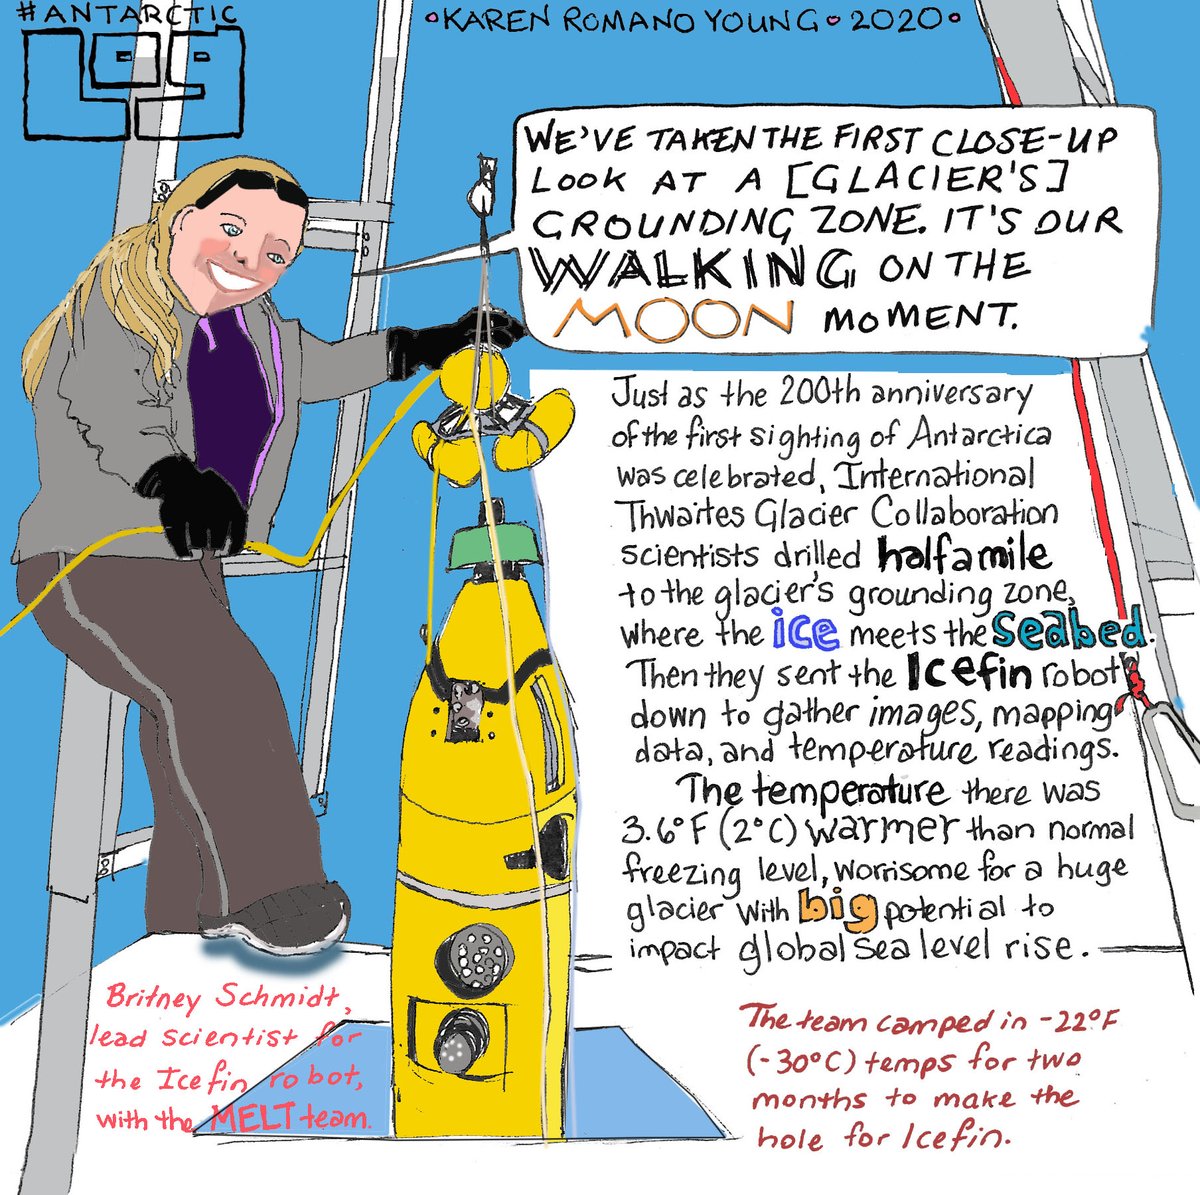 #ANTARCTIC
Log
•KAREN ROMANO YOUNG • 2020•
WE'VE TAKEN THE FIRST CLOSE-UP
LOOK AT A [GLACIER'S]
GROUNDING ZONE. IT'S OUR
WALKING ON THE
MOON MOMENT.
Just as the 200th anniversary
of the first sighting of Antarctica
was celebrated, International
Thwaites Glacier Collaboration
scientists drilled half a mile
to the glacier's grounding zone,
where the ice meets the seabed.
Then they sent the Icefin robot
down to gather images, mapping
data, and temperature readings.
The temperature there was
3.6°F (2°C) warmer than normal
freezing level, worrisome for a huge
glacier with big potential to
impact global sea level rise.
Britney Schmidt,
lead scientist for
the Icefin robot,
with the MELT team.
The team camped in -22°F
(-30°C) temps for two
months to make the
hole for Icefin.